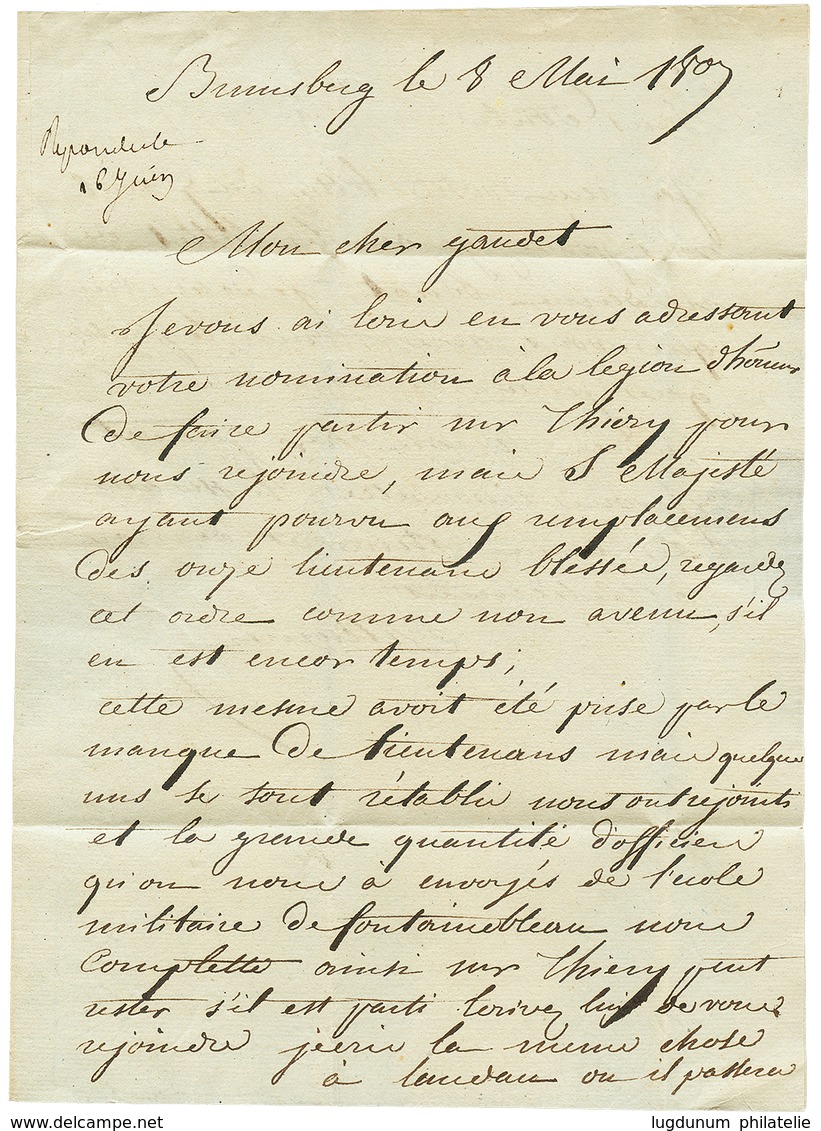 Braunsberg le 8 Mai 1807
Repondu le
16 Juin
Mon cher gaudet
Je vous ai écrie en vous adressant
votre nomination à la legion d'hõneur
de faire partir mr Thiery pour
nous rejoindre, mais S Majesté
ayant pourvu aux remplacemens
des onze lieutenans blessée, regardez
cet ordre comme non avenu, s'il
en est encor temps;
cette mesure avoit été prise par le
manque de lieutenans mais quelque
uns se sont rétablis nous ont rejoints
et la grande quantité d'officiers
qu'on nous à envoyés de l'ecole
militaire de fontainebleau nous
Complette ainsi mr Thiery peut
rester s'il est parti écrivez lui de vous
rejoindre jecris la meme chose
à landau ou il passera
lugdunum philatelie